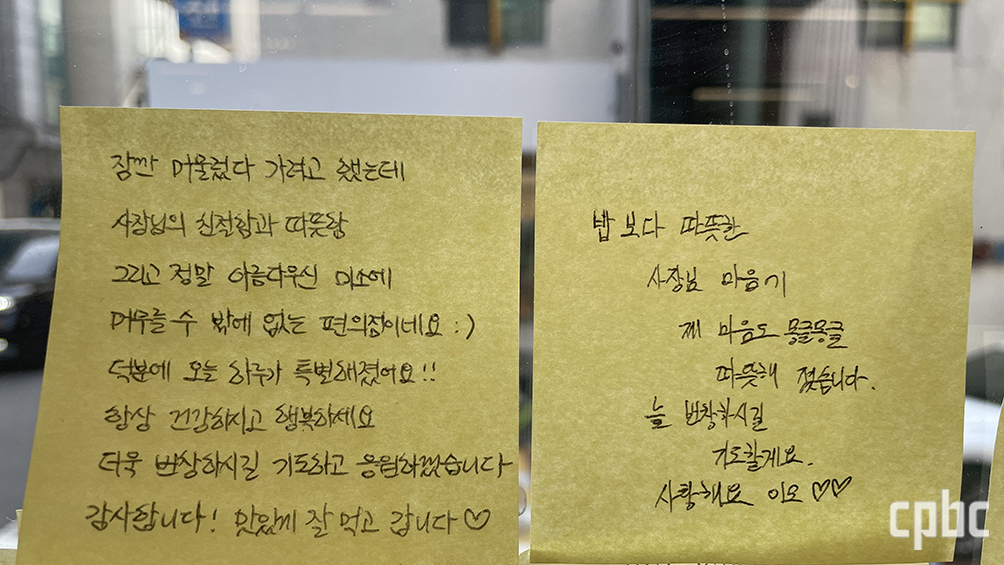 잠깐 머물렀다 가려고 했는데
사장님의 친절함과 따뜻함
그리고 정말 아름다우신 미소에
머무를 수 밖에 없는 편의점이네요 :)
덕분에 오늘 하루가 특별해졌어요!!
항상 건강하시고 행복하세요
더욱 번창하시길 기도하고 응원하겠습니다
감사합니다! 맛있게 잘 먹고 갑니다♡
밥 보다 따뜻한
사장님 마음기
제 마음도 몽글몽글
따뜻해 졌습니다.
늘 번창하시길
기도할게요.
사랑해요 이모♡♡
cpbc